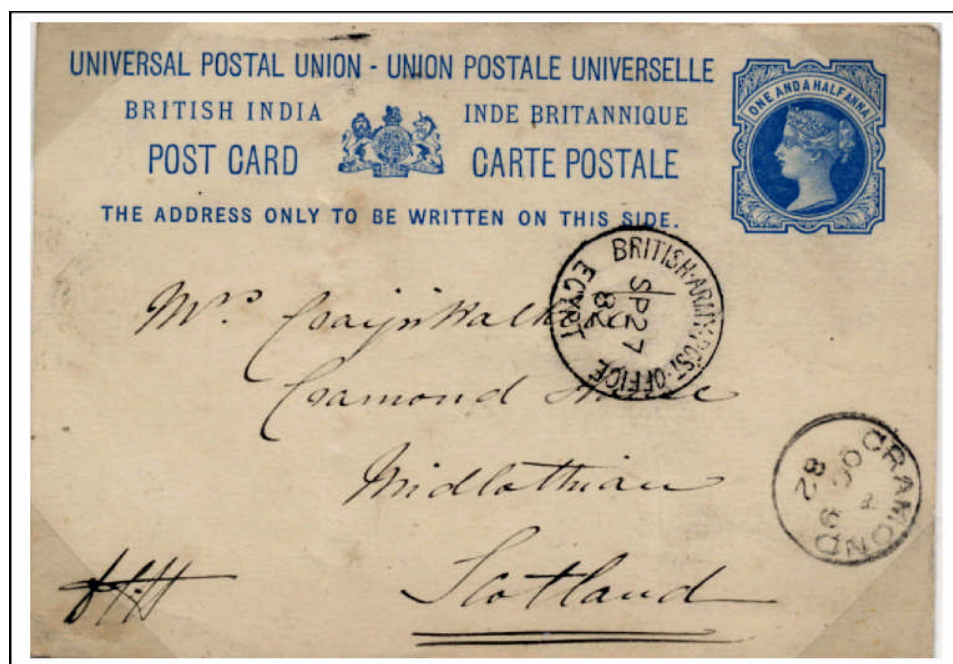 UNIVERSAL POSTAL UNION - UNION POSTALE UNIVERSELLE
BRITISH INDIA INDE BRITANNIQUE
POST CARD CARTE POSTALE
THE ADDRESS ONLY TO BE WRITTEN ON THIS SIDE.
ONE AND A HALF ANNA
BRITISH·ARMY·POST·OFFICE
EGYPT
SP 27
82
Mrs.
Cramond House
Midlothian
Scotland
CRAMOND
OC
82